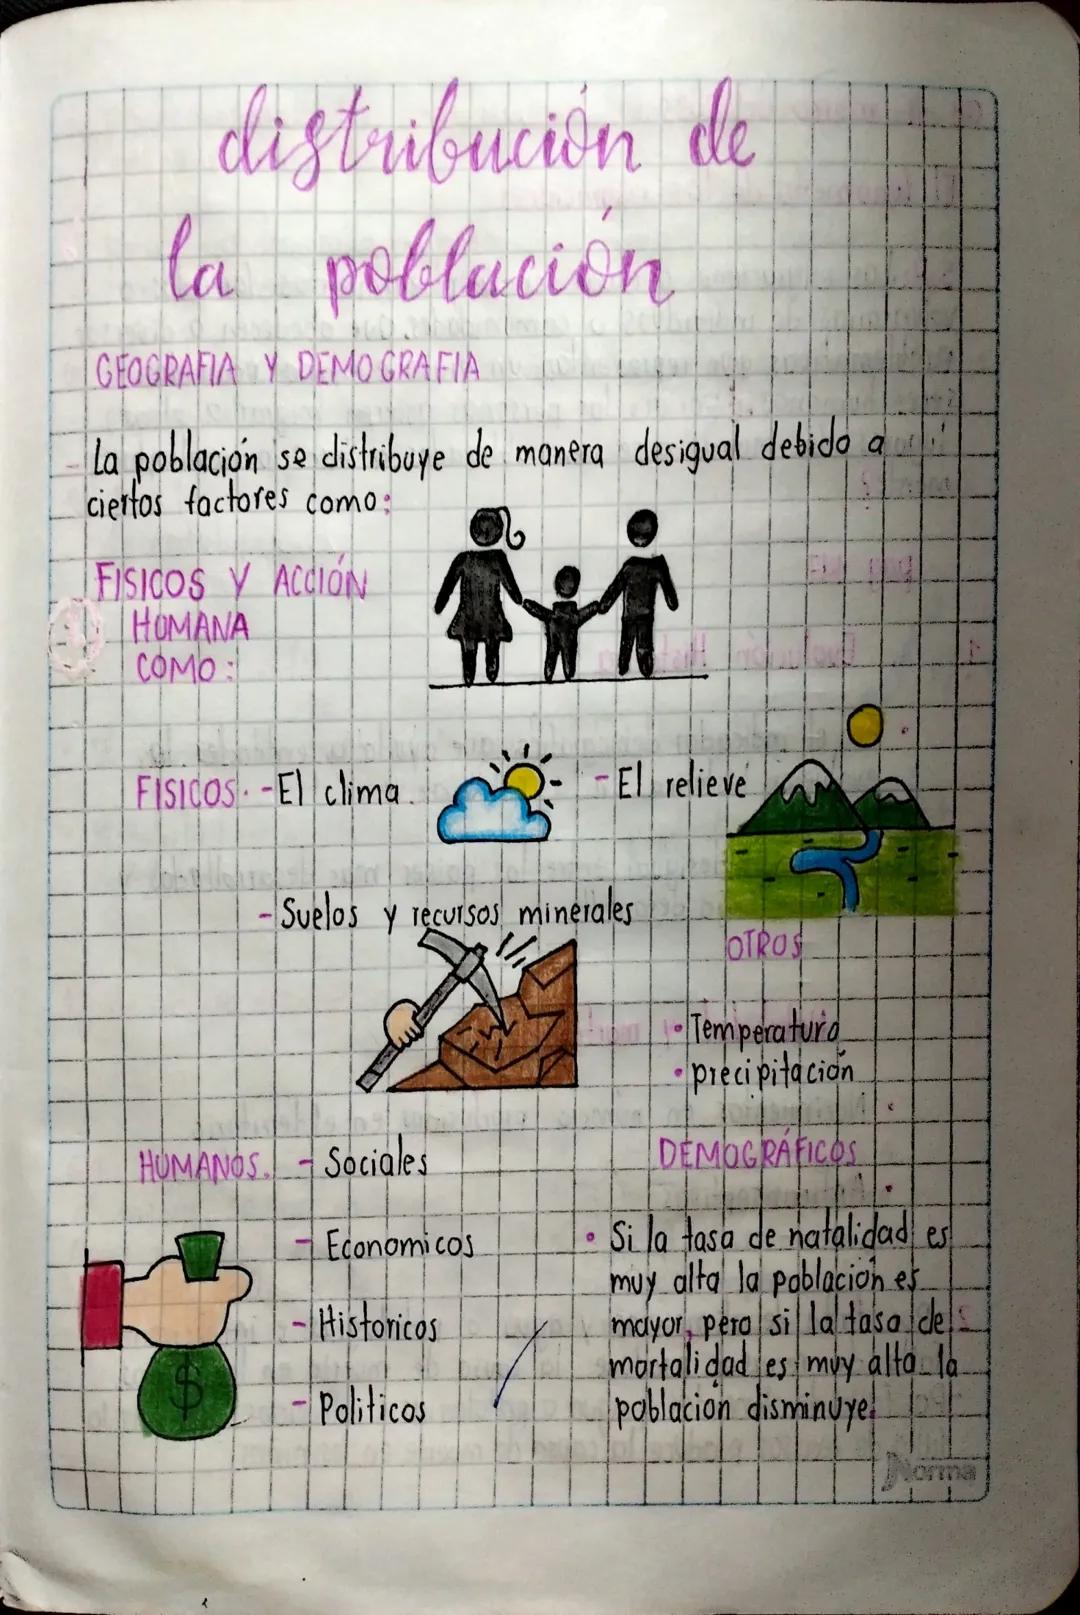 distribución de
la población
GEOGRAFIA Y DEMOGRAFIA
La población se distribuye de manera desigual debido a
ciertos factores como:
FISICOS Y ACCIÓN
HUMANA
COMO:
FISICOS. - El clima.
- El relieve
- Suelos y recursos minerales
OTROS
• Temperatura
• precipitación
HUMANOS. - Sociales
- Economicos
- Historicos
- Politicos
$
DEMOGRÁFICOS
• Si la tasa de natalidad es
muy alta la población es
mayor, pero si la tasa de
mortalidad es muy alta la
población disminuye.
Norma